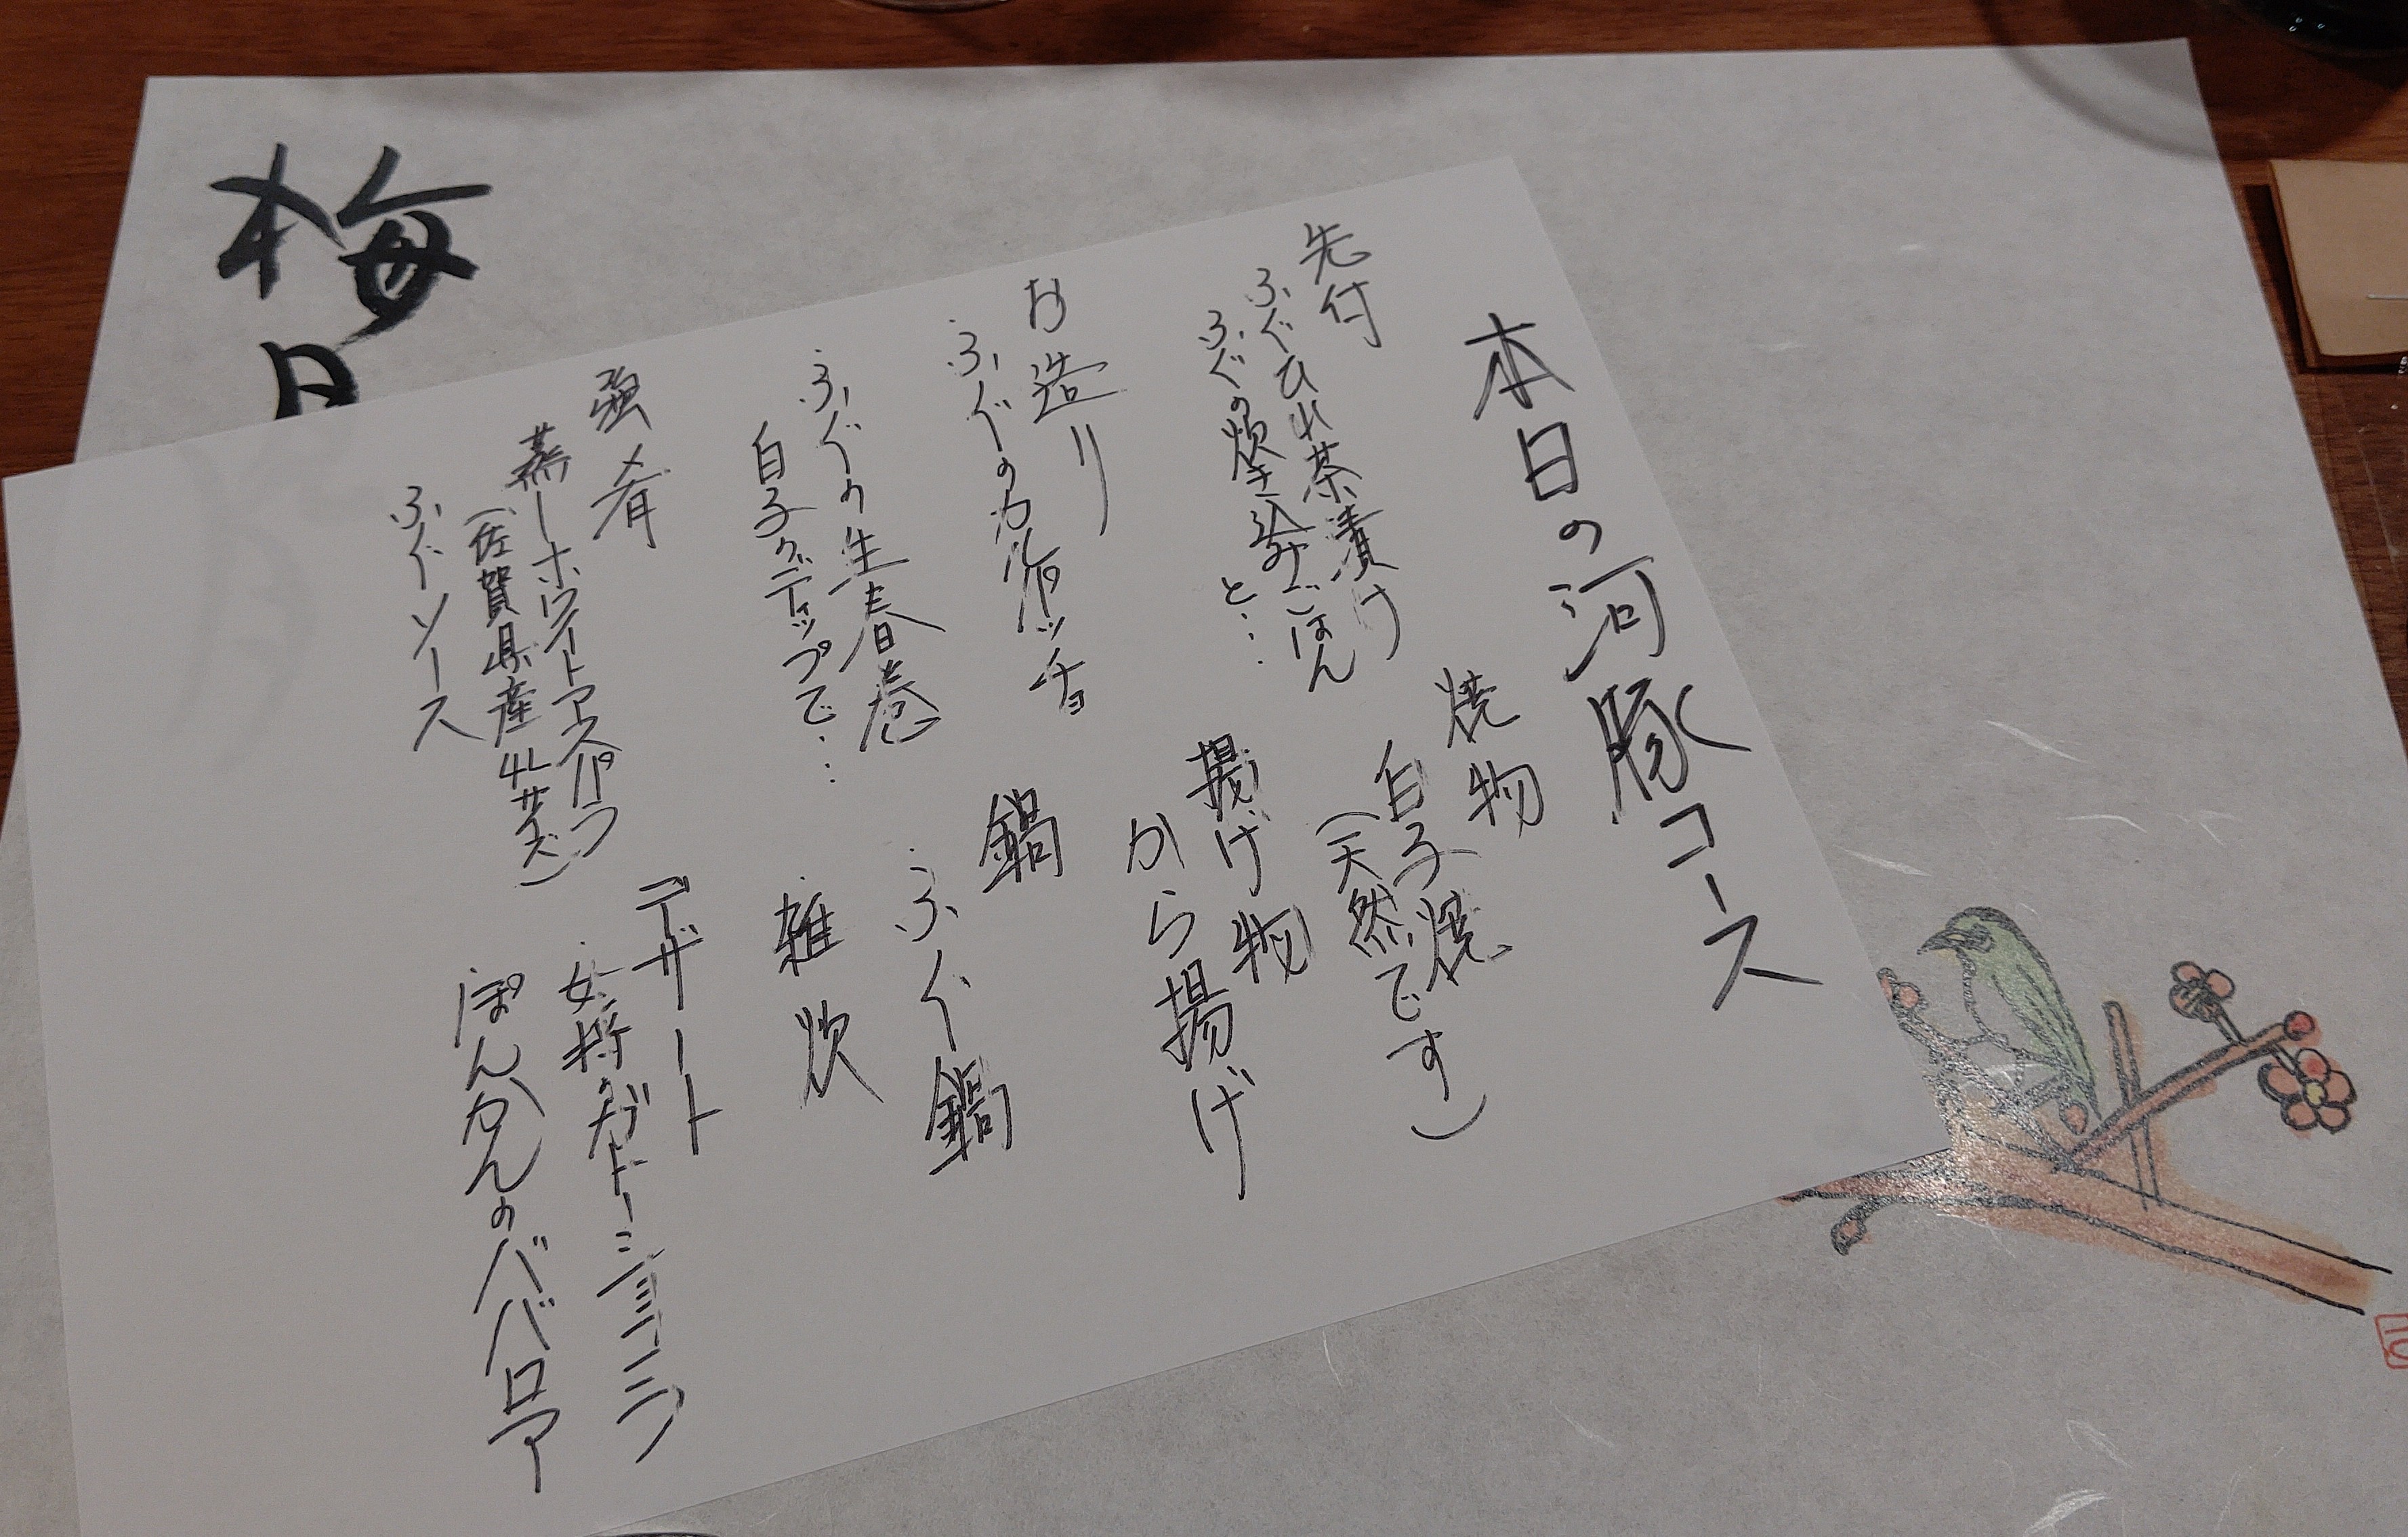 本日の河豚コース
先付
ふぐひれ茶漬け
ふぐの炊き込みごはん
と…
お造り
ふぐのカルパッチョ
ふぐの生春巻
白子のディップで…
強肴
蒸しホワイトアスパラ
(佐賀県産4Lサイズ)
ふぐソース
焼物
白子焼
(天然です)
揚げ物
から揚げ
鍋
ふぐ鍋
雑炊
デザート
女将のガトーショコラ
ぽんかんのババロア
梅
日